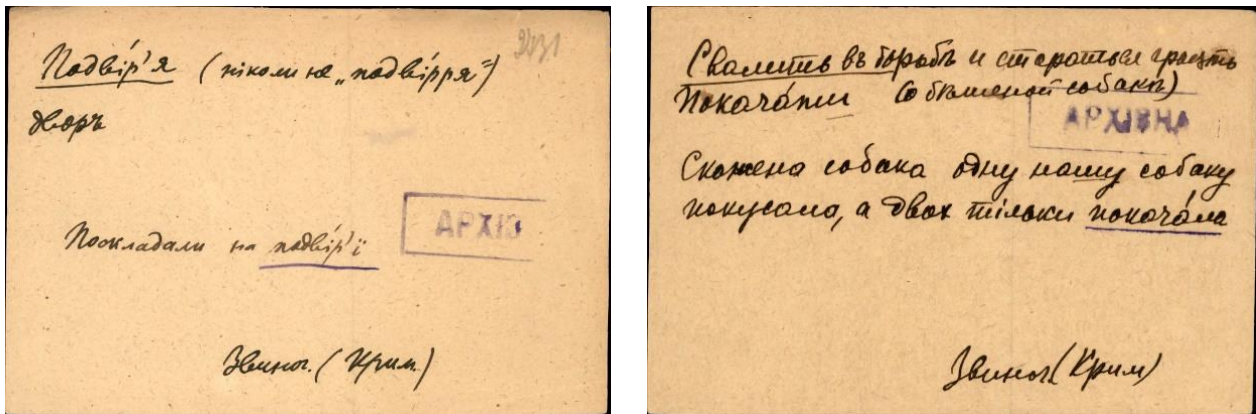 2431
Подві́р'я (ніколи не „подвірря")
дворъ
АРХІВ
Поскладали на подвір'ї
Звиног. (Крим.)
Свалить въ борьбѣ и стараться грызть
Покача́ти (о бѣшеной собакѣ)
АРХІВНА
Скажена собака одну нашу собаку
покусала, а двох тільки покача́ла
Звиног (Крим)